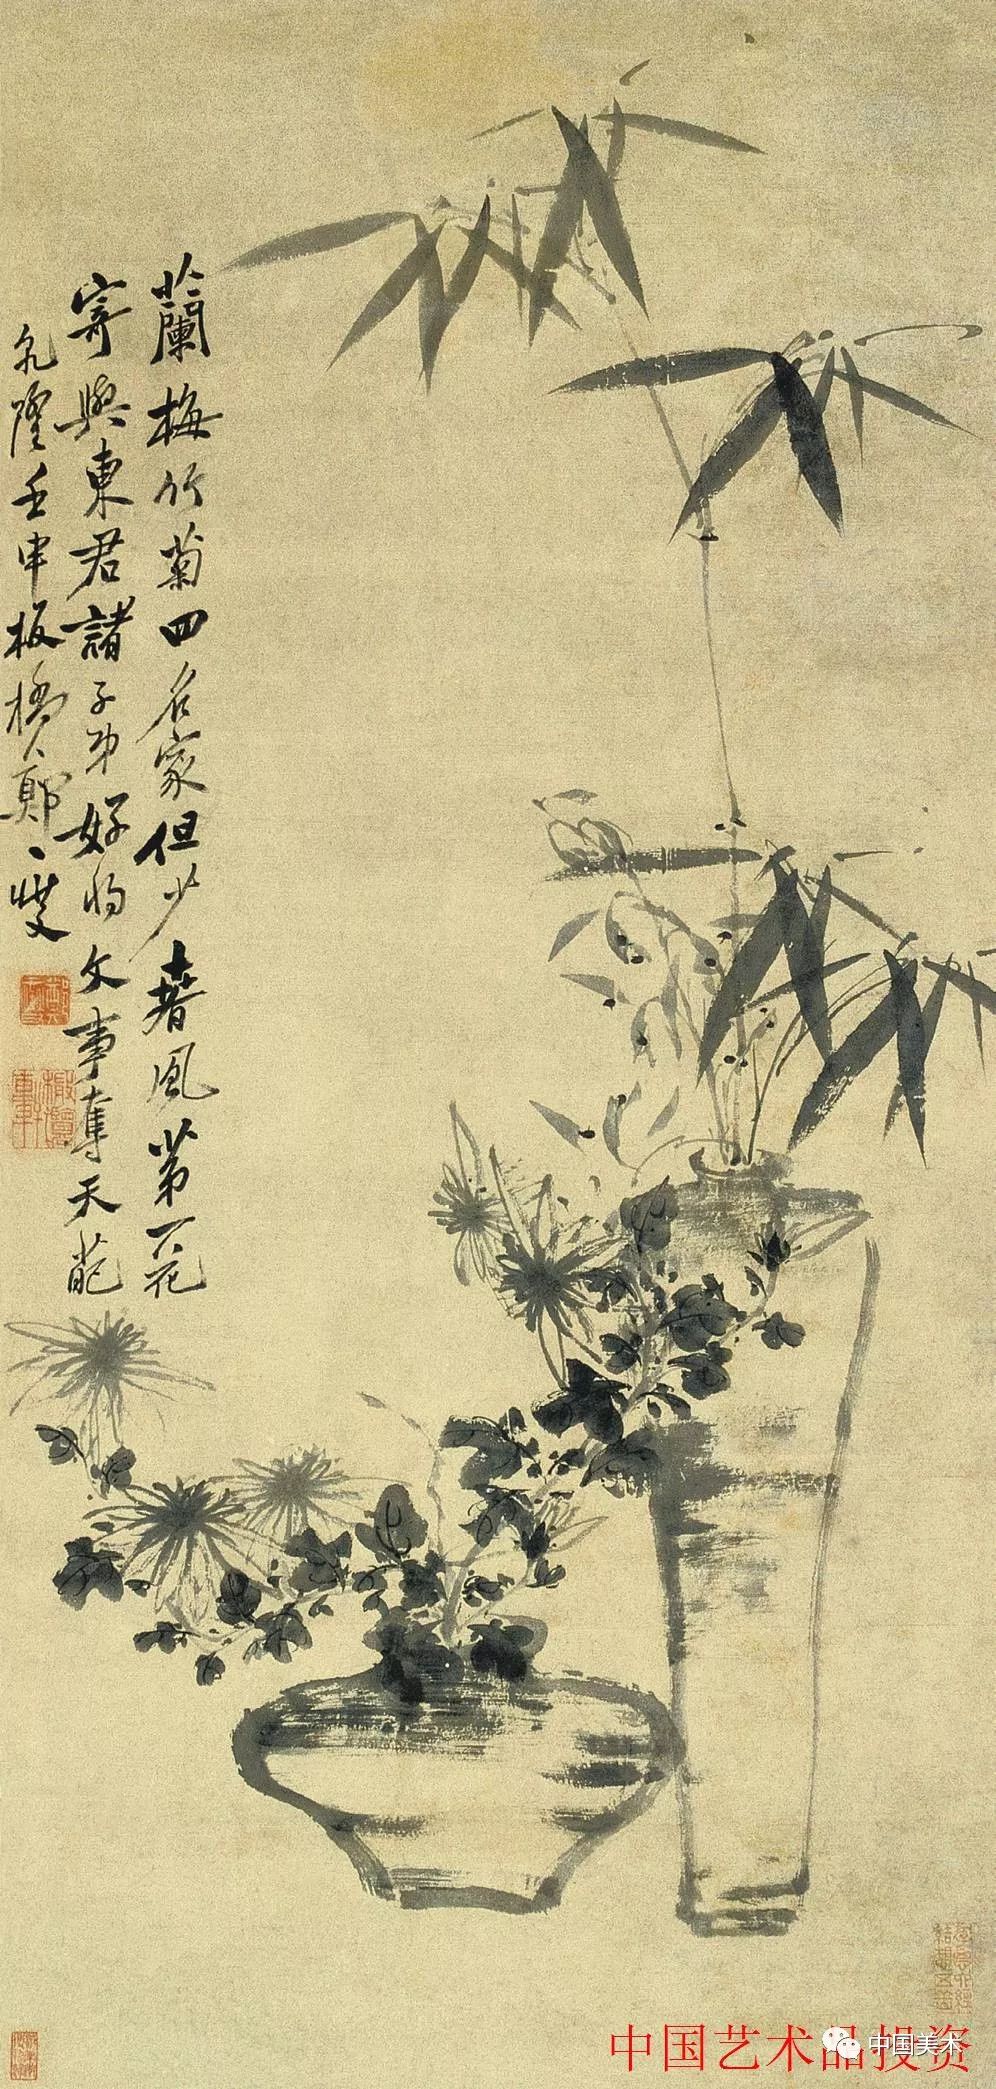 蘭梅竹菊四名家但少春風第一花
寄與東君諸子弟好將文事奪天葩
乾隆壬申板橋鄭燮
中国艺术品投资
中国美术